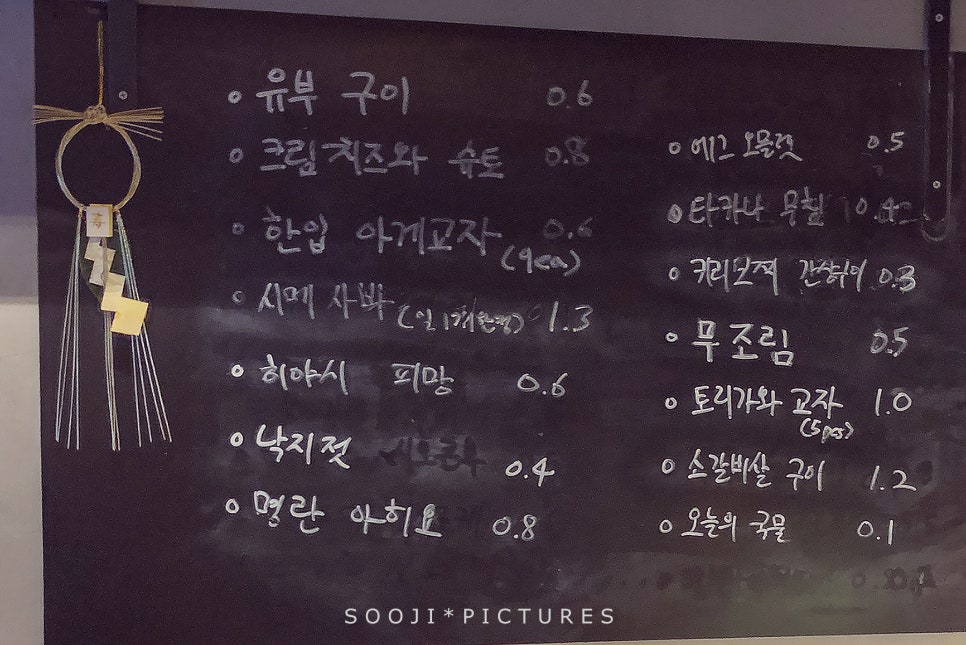 유부 구이 0.6
크림치즈와 슈토 0.8
한입 아게교자 0.6
(9ea)
시메 사바 1.3
히야시 피망 0.6
낙지젓 0.4
명란 아히요 0.8
에그 오믈렛 0.5
타카나 무침 0.4
0.3
무조림 0.5
토리가와 교자 1.0
(5pcs)
소갈비살 구이 1.2
오늘의 국물 0.1
SOOJI*PICTURES